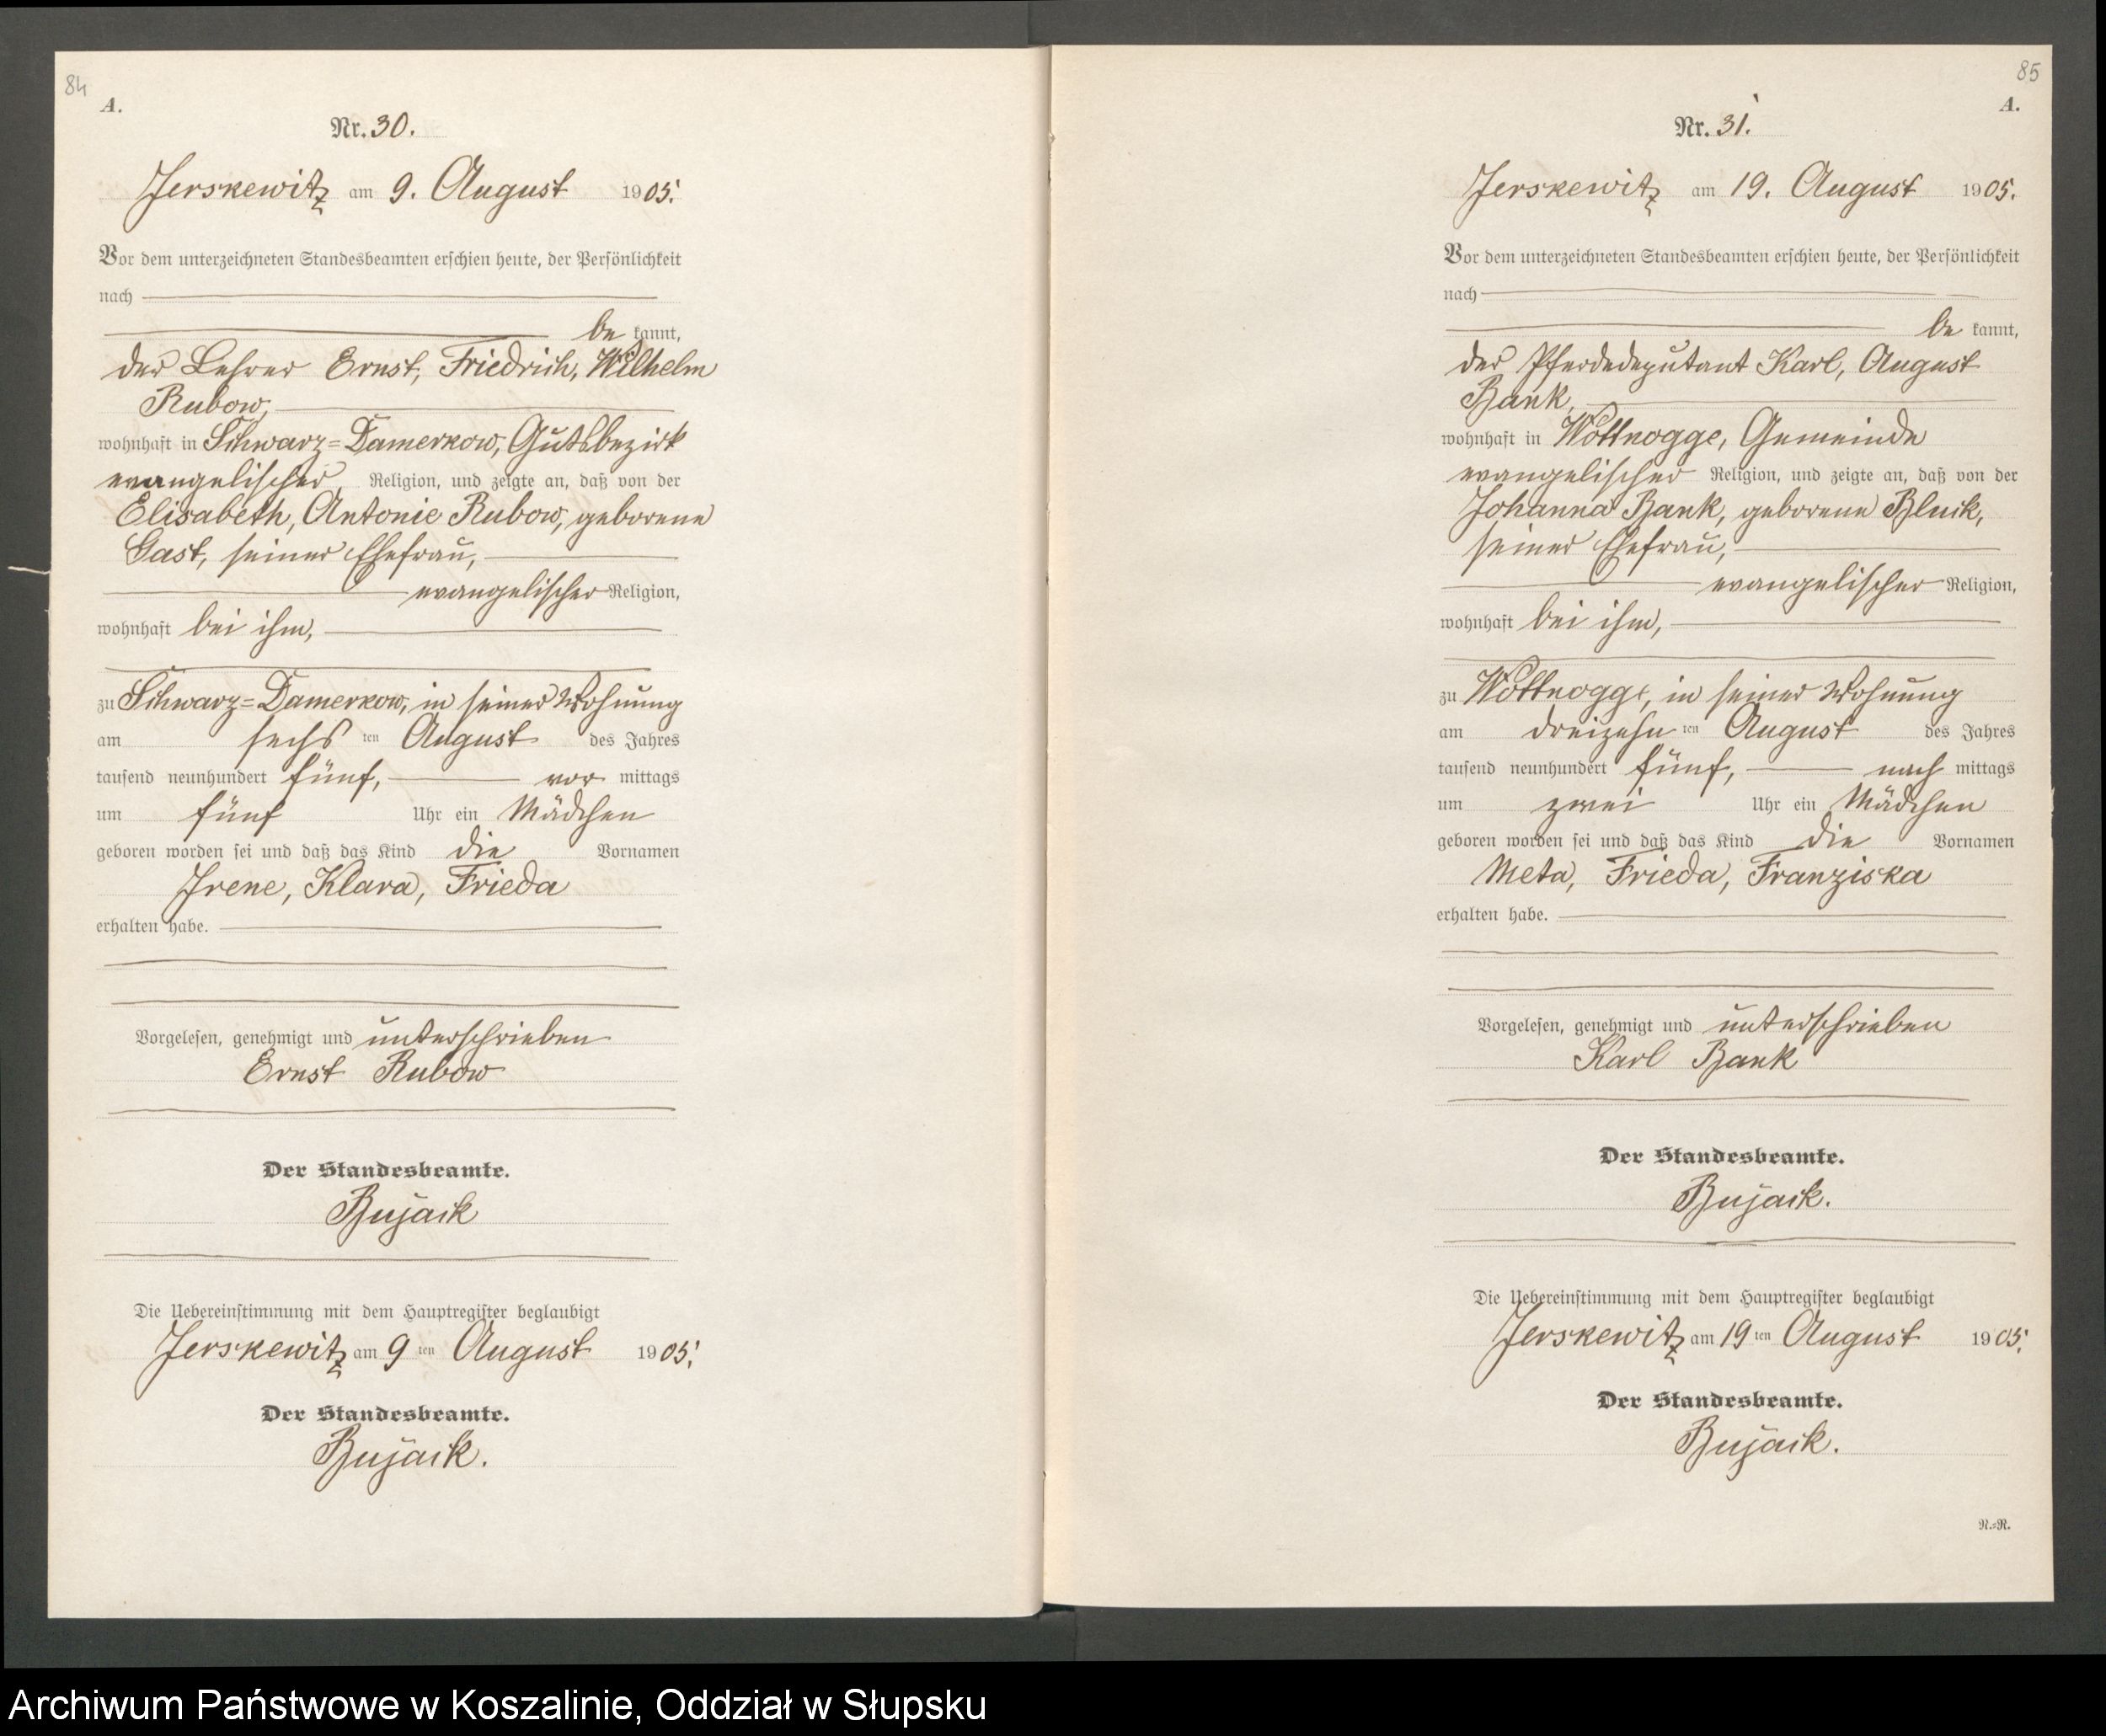 84
A.
Nr. 30.
Jerskewitz am 9. August 1905.
Vor dem unterzeichneten Standesbeamten erschien heute, der Persönlichkeit
nach
be kannt,
der Lehrer Ernst, Friedrich, Wilhelm
Rubow,
wohnhaft in Schwarz=Damerkow, Gutsbezirk
evangelischer Religion, und zeigte an, daß von der
Elisabeth, Antonie Rubow, geborene
Gast, seiner Ehefrau,
evangelischer Religion,
wohnhaft bei ihm,
zu Schwarz=Damerkow, in seiner Wohnung
am sechs ten August des Jahres
tausend neunhundert fünf, vor mittags
um fünf Uhr ein Mädchen
geboren worden sei und daß das Kind die Vornamen
Irene, Klara, Frieda
erhalten habe.
Vorgelesen, genehmigt und unterschrieben
Ernst Rubow
Der Standesbeamte.
Bujack
Die Uebereinstimmung mit dem Hauptregister beglaubigt
Jerskewitz am 9 ten August 1905.
Der Standesbeamte.
Bujack.
85
A.
Nr. 31.
Jerskewitz am 19. August 1905.
Vor dem unterzeichneten Standesbeamten erschien heute, der Persönlichkeit
nach
be kannt,
der Pferdedeputant Karl, August
Bank,
wohnhaft in Wottnogge, Gemeinde
evangelischer Religion, und zeigte an, daß von der
Johanna Bank, geborene Bluck,
seiner Ehefrau,
evangelischer Religion,
wohnhaft bei ihm,
zu Wottnogge, in seiner Wohnung
am dreizehn ten August des Jahres
tausend neunhundert fünf, nach mittags
um zwei Uhr ein Mädchen
geboren worden sei und daß das Kind die Vornamen
Meta, Frieda, Franziska
erhalten habe.
Vorgelesen, genehmigt und unterschrieben
Karl Bank
Der Standesbeamte.
Bujack.
Die Uebereinstimmung mit dem Hauptregister beglaubigt
Jerskewitz am 19 ten August 1905.
Der Standesbeamte.
Bujack.
N.=R.
Archiwum Państwowe w Koszalinie, Oddział w Słupsku